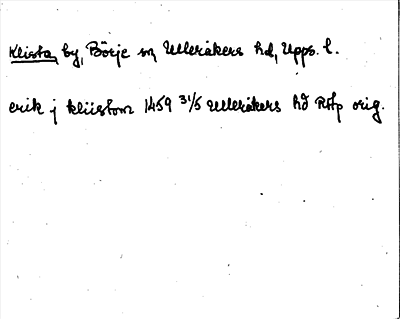 Klista by, Börje sn, Ulleråkers hd, Upps. l.
erik j kliistom 1459 31/5 Ulleråkers hd RAp orig.